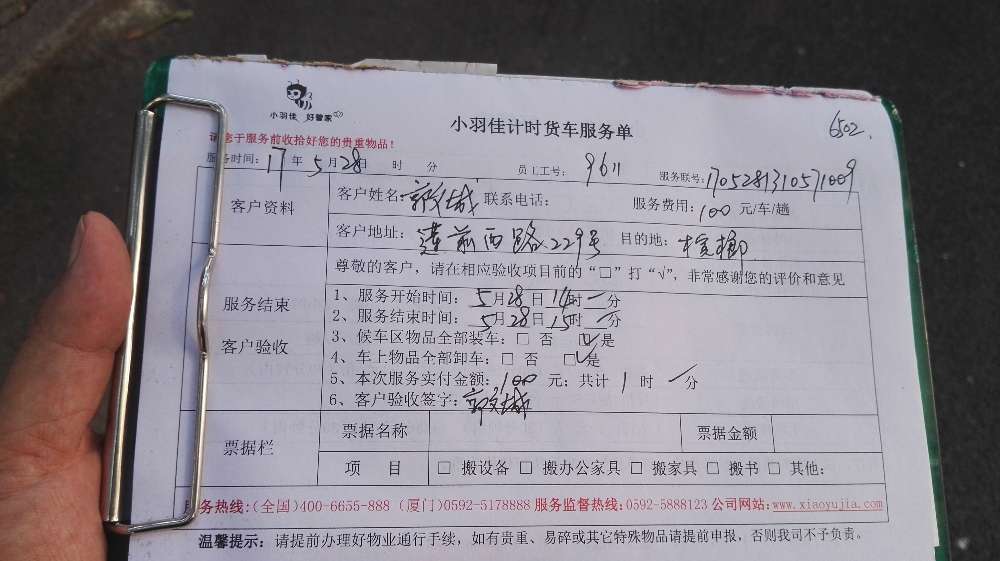 小羽佳 好管家
小羽佳计时货车服务单
6502
请您于服务前收拾好您的贵重物品!
服务时间: 17 年 5 月 28 日 时 分 员工工号: 9611 服务联号: 1705281310571009
客户资料
客户姓名: 郭文城 联系电话: 服务费用: 100 元/车/趟
客户地址: 莲前西路229号 目的地: 槟榔
服务结束
客户验收
尊敬的客户，请在相应验收项目前的“□”打“√”，非常感谢您的评价和意见
1、服务开始时间: 5月28日14时一分
2、服务结束时间: 5月28日15时一分
3、候车区物品全部装车: □ 否 ☑是
4、车上物品全部卸车: □ 否 ☑是
5、本次服务实付金额: 100 元; 共计 1 时 一分
6、客户验收签字: 郭文城
票据栏
票据名称 票据金额
项 目 □ 搬设备 □ 搬办公家具 □ 搬家具 □ 搬书 □ 其他:
服务热线:(全国)400-6655-888 (厦门)0592-5178888 服务监督热线:0592-5888123 公司网站:www.xiaoyujia.com
温馨提示: 请提前办理好物业通行手续，如有贵重、易碎或其它特殊物品请提前申报，否则我司不予负责。